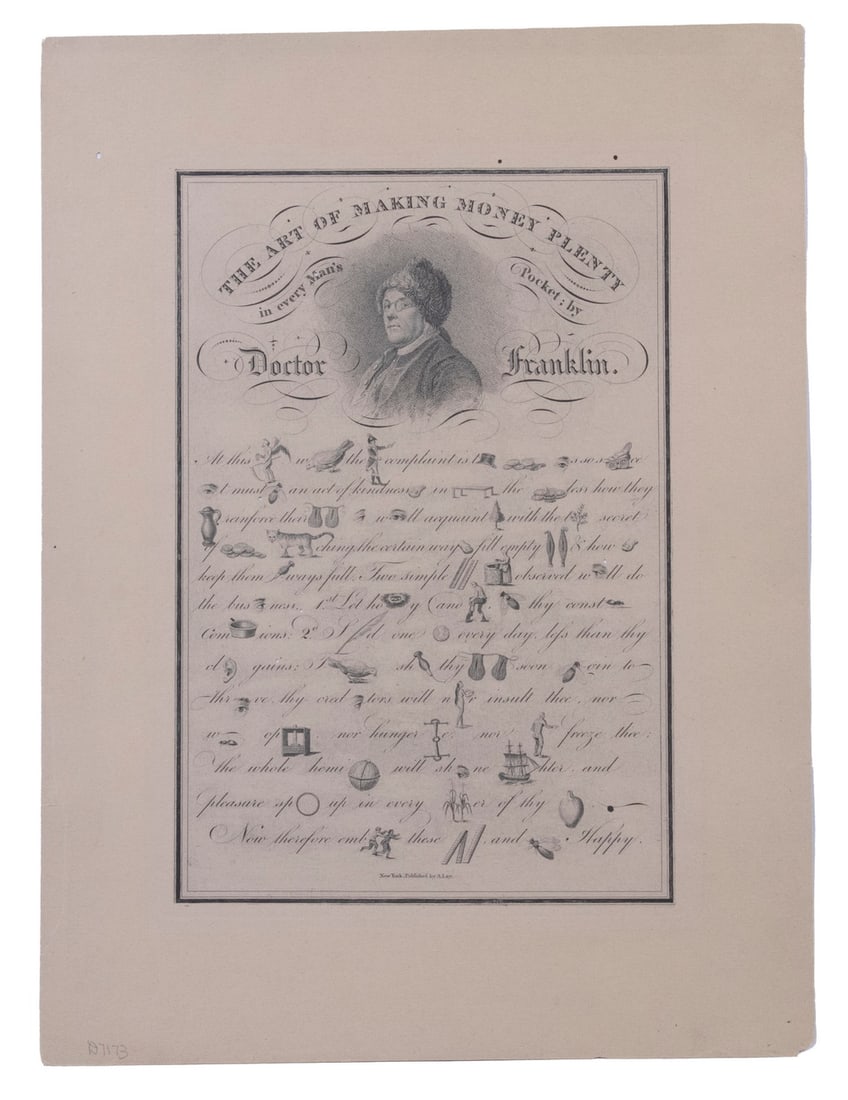 THE ART OF MAKING MONEY PLENTY
in every Man's Pocket; by
Doctor Franklin.
At this w the complaint is t s so s ce
t must an act of kindness in the less how they
reinforce their w ll acquaint with the t secret
of ching, the certain way fill empty & how
keep them ways full. Two simple observed w ll do
the bus ness. 1st Let ho y (and thy const
Com ions: 2d S d one every day, less than thy
cl gains; T sh thy soon gin to
thr ve thy cred tors will n r insult thee, nor
w op nor hunger e, nor freeze thee;
the whole hemi will sh ne hter, and
pleasure sp up in every er of thy
Now therefore emb these and Happy.
New York, Published by A. Lay.
D7173